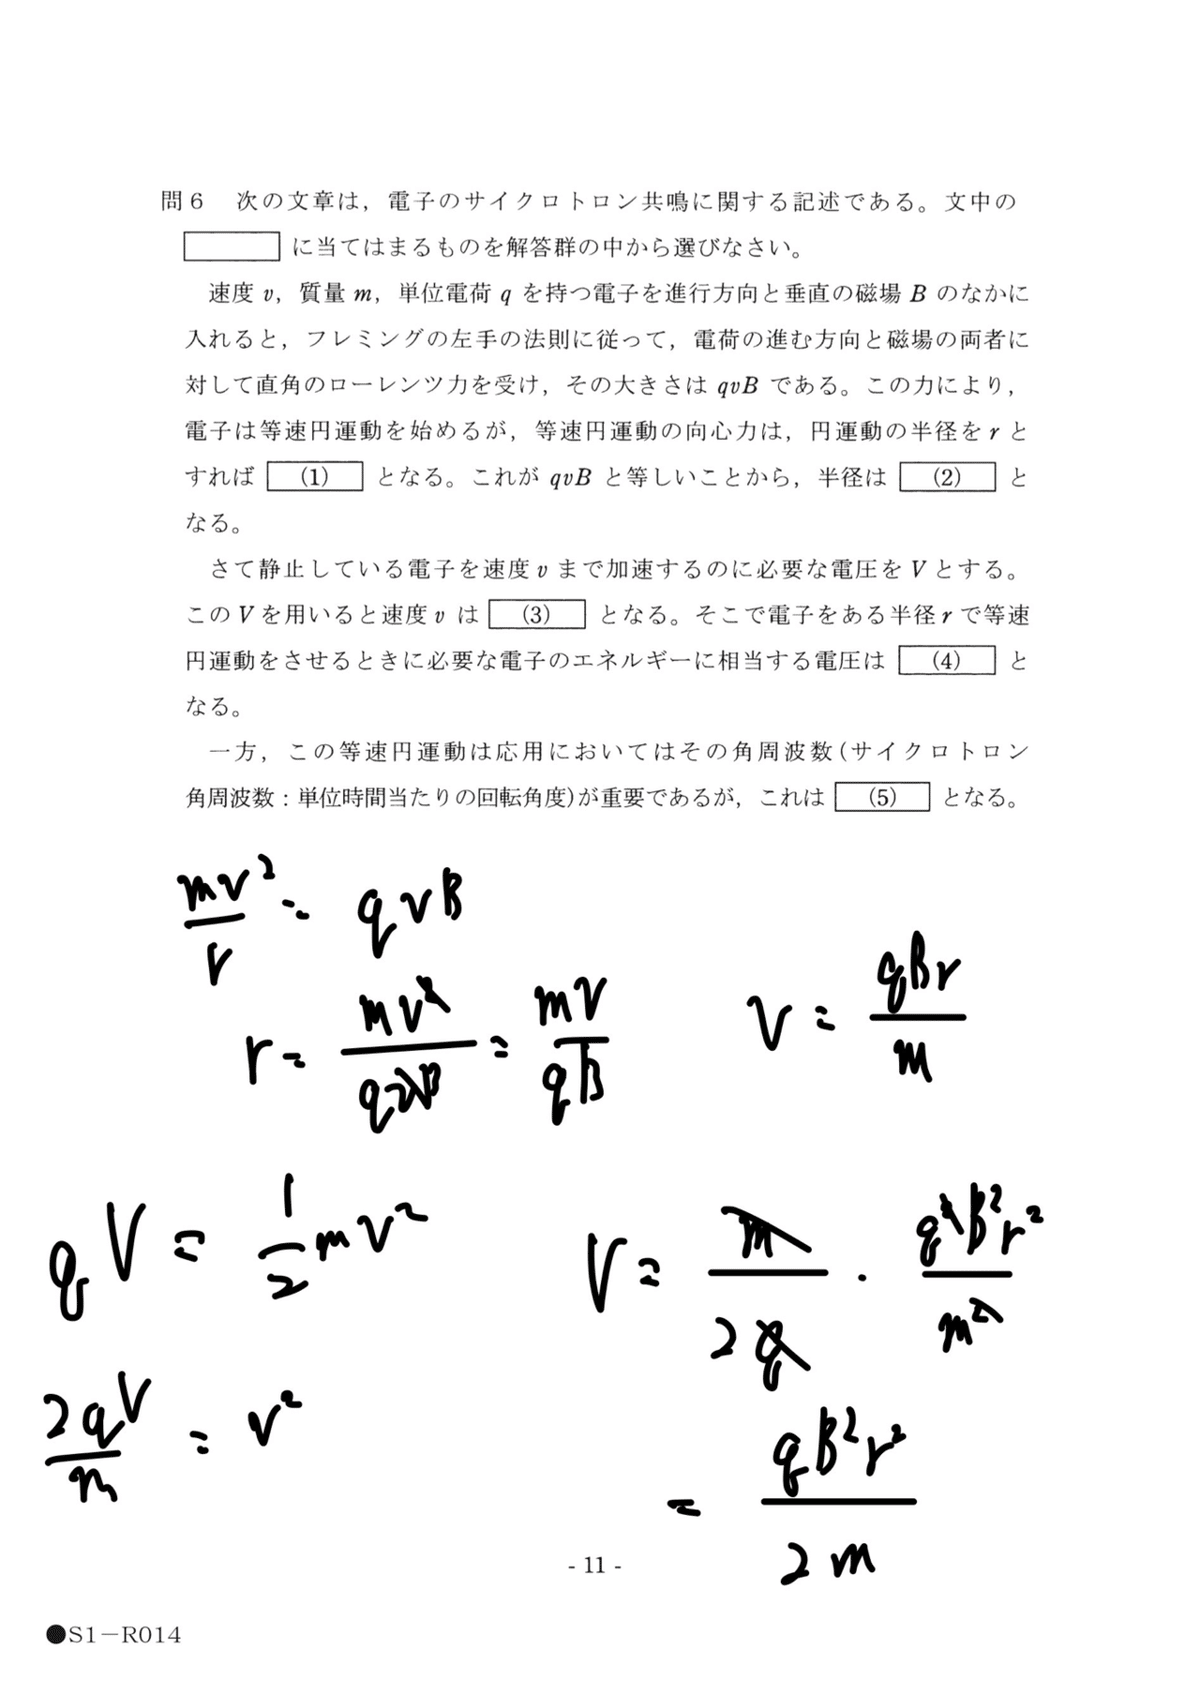 問６　次の文章は，電子のサイクロトロン共鳴に関する記述である。文中の
に当てはまるものを解答群の中から選びなさい。
速度 v，質量 m，単位電荷 q を持つ電子を進行方向と垂直の磁場 B のなかに
入れると，フレミングの左手の法則に従って，電荷の進む方向と磁場の両者に
対して直角のローレンツ力を受け，その大きさは qvB である。この力により，
電子は等速円運動を始めるが，等速円運動の向心力は，円運動の半径を r と
すれば (1) となる。これが qvB と等しいことから，半径は (2) と
なる。
さて静止している電子を速度 v まで加速するのに必要な電圧を V とする。
この V を用いると速度 v は (3) となる。そこで電子をある半径 r で等速
円運動をさせるときに必要な電子のエネルギーに相当する電圧は (4) と
なる。
一方，この等速円運動は応用においてはその角周波数(サイクロトロン
角周波数：単位時間当たりの回転角度)が重要であるが，これは (5) となる。
mv²/r = qvB
r = mv²/qvB = mv/qB
v = qBr/m
qV = 1/2 mv²
V = m/2q · q²B²r²/m²
2qV/m = v²
= qB²r²/2m
- 11 -
●S1－R014